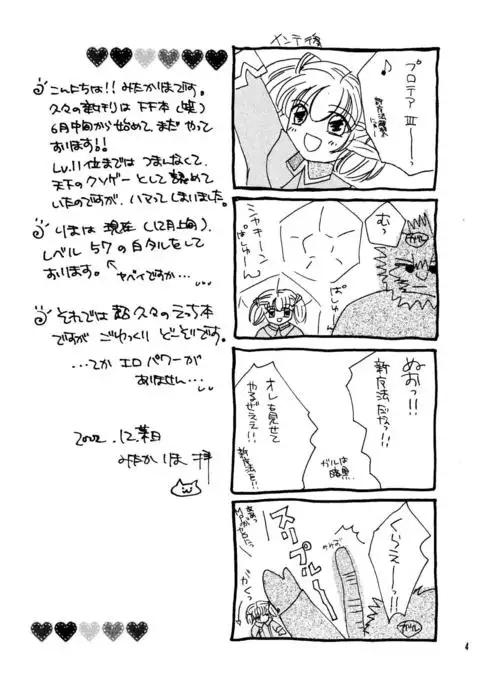 こんにちは!! みたかりほです。
久々の新刊は FF本(笑)
6月中旬から始めて、まだ やって
おります!!
Lv.11位までは つまんなくて、
天下のクソゲーとして認めて
いたのですが、ハマってしまいました。
いまは 現在(12月上旬)、
レベル 57の白タルをして
おります。
ヤバイですか…
それでは 超 久々の えっち本
ですが ごゆっくり どーぞです。
…てか エロパワーが
ありません…
みたかりほ 拝
メンテ後
プロテア Ⅲ—♪
むっ
ガル
シャキーン
ぱしゅーん
ぱしゅーん
ぬおっ!!
新魔法だなっ!!
オレも見せて
やるぜええ!!
ガルは
暗黒
くらえーっ!!
スリプル
ガル
がくっ
4